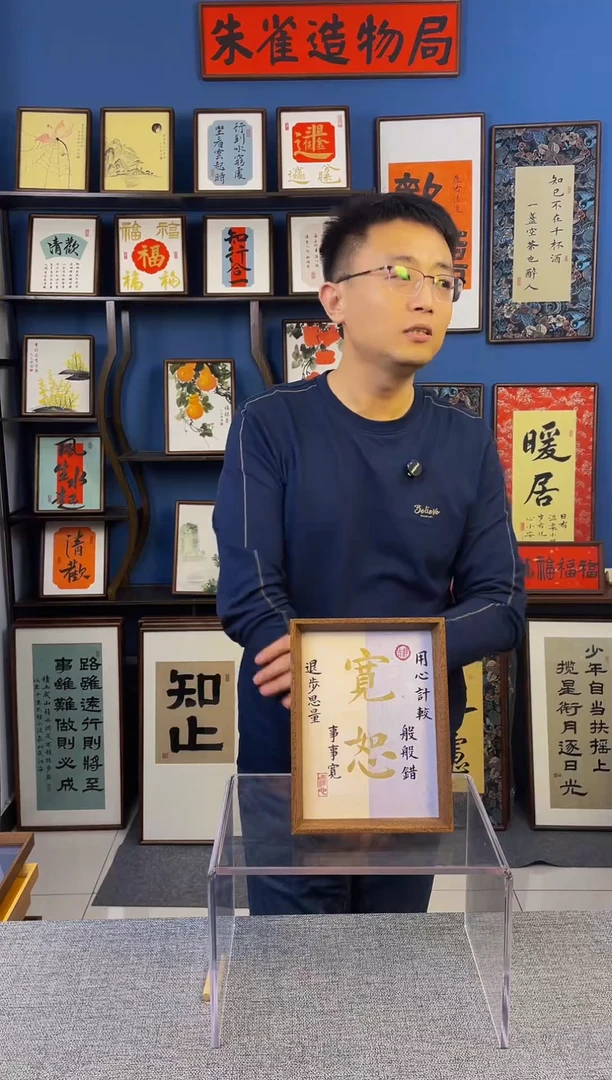 朱雀造物局
行到水窮處
坐看雲起時
知己不在千杯酒
一盞空茶也醉人
清歡
福
福
福
福
福
知行合一
風生水起
清歡
暖居
日有
小安
福福福
Believe
用心計較
般般錯
寬恕
退步思量
事事寬
路雖遠行則將至
事雖難做則必成
知止
少年自当扶搖上
攬星銜月逐日光